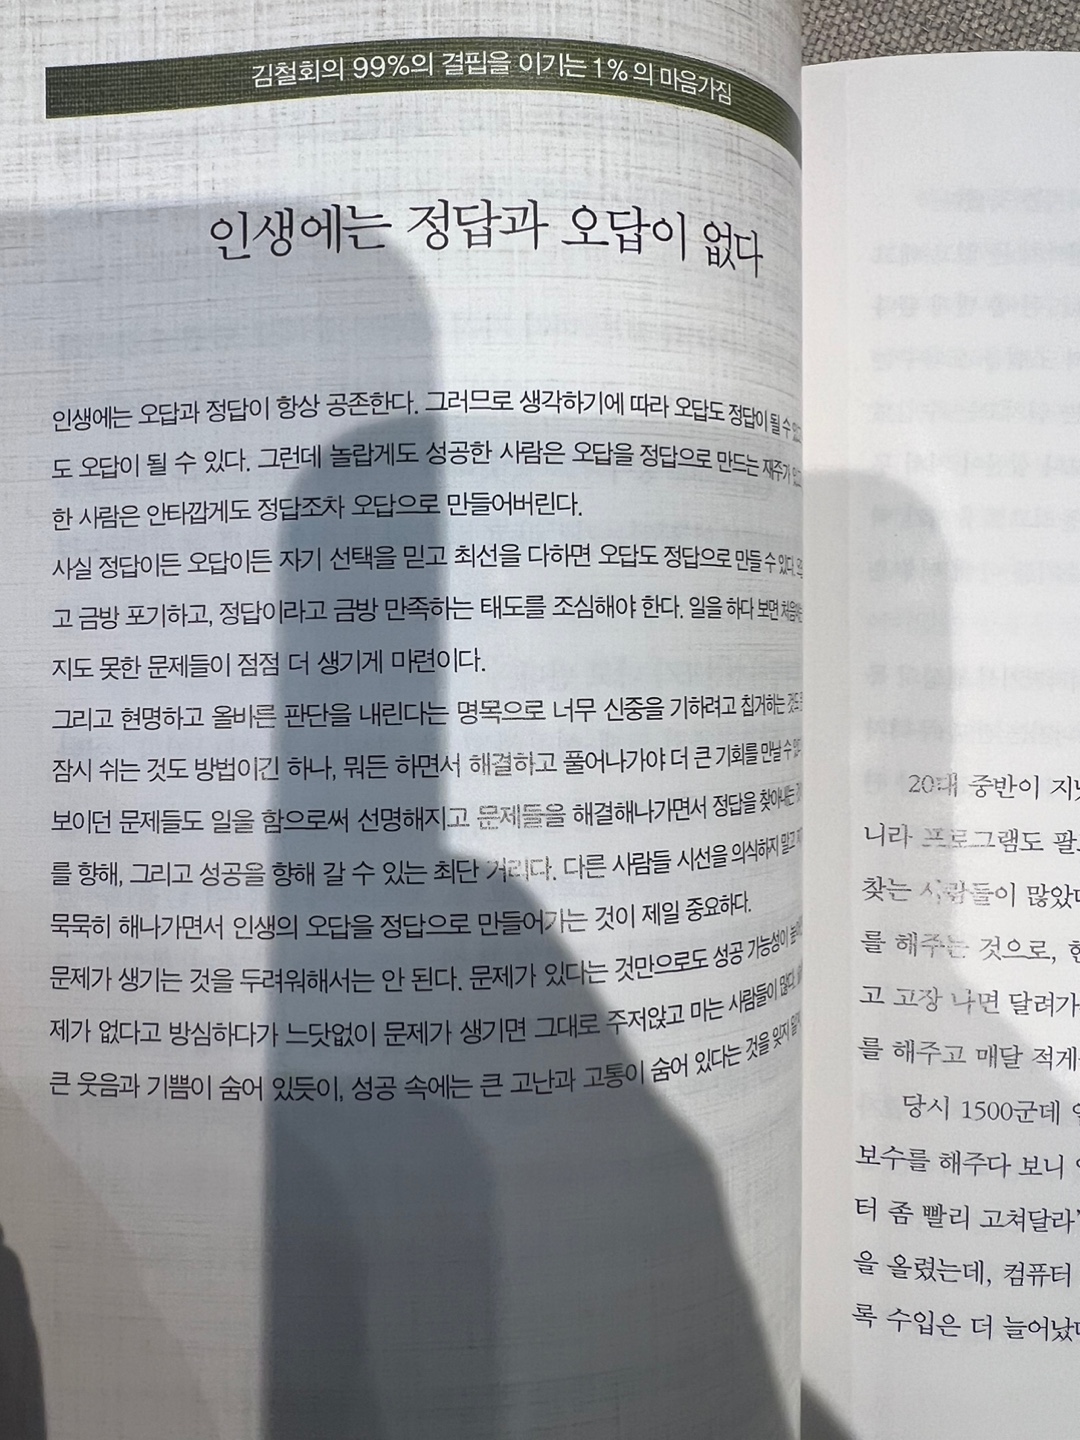 김철회의 99%의 결핍을 이기는 1%의 마음가짐
인생에는 정답과 오답이 없다
인생에는 오답과 정답이 항상 공존한다. 그러므로 생각하기에 따라 오답도 정답이 될 수 있고
도 오답이 될 수 있다. 그런데 놀랍게도 성공한 사람은 오답을 정답으로 만드는 재주가 있고
한 사람은 안타깝게도 정답조차 오답으로 만들어버린다.
사실 정답이든 오답이든 자기 선택을 믿고 최선을 다하면 오답도 정답으로 만들 수 있다.
고 금방 포기하고, 정답이라고 금방 만족하는 태도를 조심해야 한다. 일을 하다 보면
지도 못한 문제들이 점점 더 생기게 마련이다.
그리고 현명하고 올바른 판단을 내린다는 명목으로 너무 신중을 기하려고 칩거하는 것도
잠시 쉬는 것도 방법이긴 하나, 뭐든 하면서 해결하고 풀어나가야 더 큰 기회를 만날 수 있다
보이던 문제들도 일을 함으로써 선명해지고 문제들을 해결해나가면서 정답을 찾아내는
를 향해, 그리고 성공을 향해 갈 수 있는 최단 거리다. 다른 사람들 시선을 의식하지 말고
묵묵히 해나가면서 인생의 오답을 정답으로 만들어가는 것이 제일 중요하다.
문제가 생기는 것을 두려워해서는 안 된다. 문제가 있다는 것만으로도 성공 가능성이
제가 없다고 방심하다가 느닷없이 문제가 생기면 그대로 주저앉고 마는 사람들이 많다.
큰 웃음과 기쁨이 숨어 있듯이, 성공 속에는 큰 고난과 고통이 숨어 있다는 것을 잊지 말자
20대 중반이 지
니라 프로그램도 팔
찾는 사람들이 많았
를 해주는 것으로,
고 고장 나면 달려가
를 해주고 매달 적게
당시 1500군데
보수를 해주다 보니
터 좀 빨리 고쳐달라
을 올렸는데, 컴퓨터
록 수입은 더 늘어났